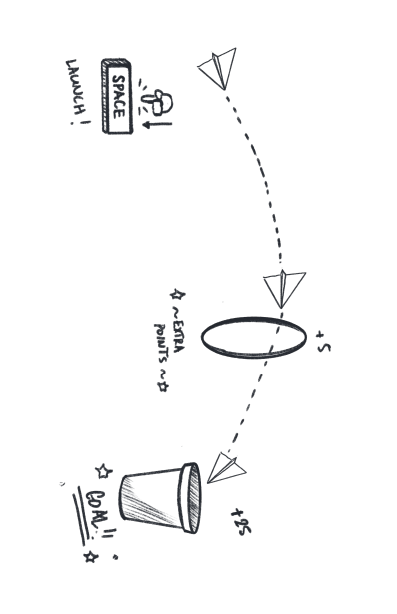 SPACE
LAUNCH!
+5
☆ ~EXTRA
POINTS~ ☆
+25
☆ GOAL!! ☆